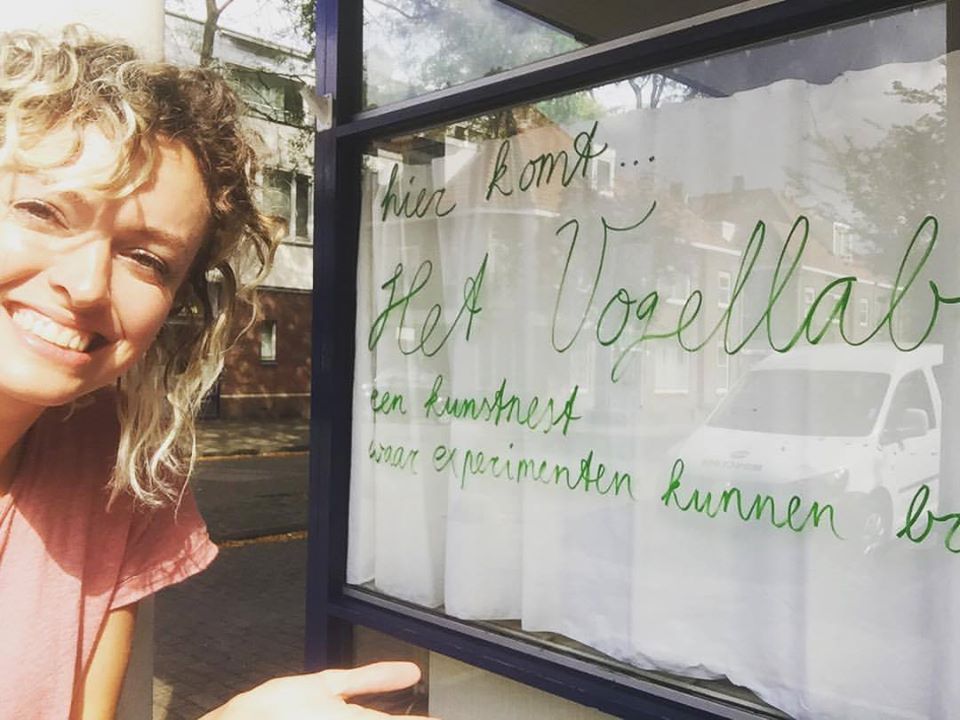 hier komt...
Het Vogellab
een kunstnest
waar experimenten kunnen